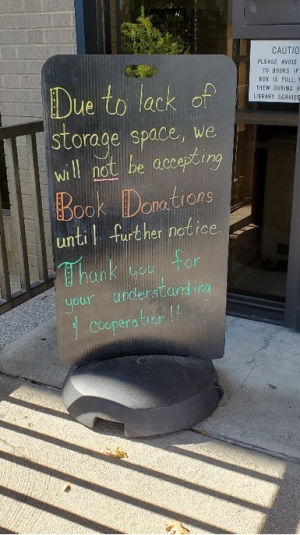 Due to lack of
storage space, we
will not be accepting
Book Donations
until further notice.
Thank you for
your understanding
& cooperation!!
CAUTIO
PLEASE AVOID
TO BOOKS IF
BOX IS FULL.
THEM DURING
LIBRARY SERVICE